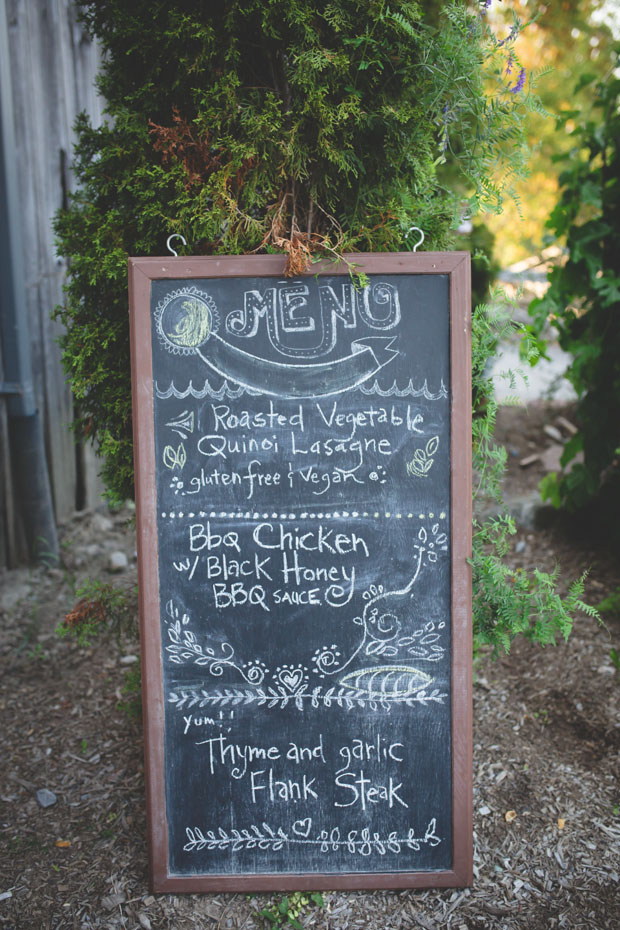 MENU
Roasted Vegetable
Quinoi Lasagne
gluten free & Vegan
BBQ Chicken
w/ Black Honey
BBQ SAUCE
yum!!
Thyme and garlic
Flank Steak